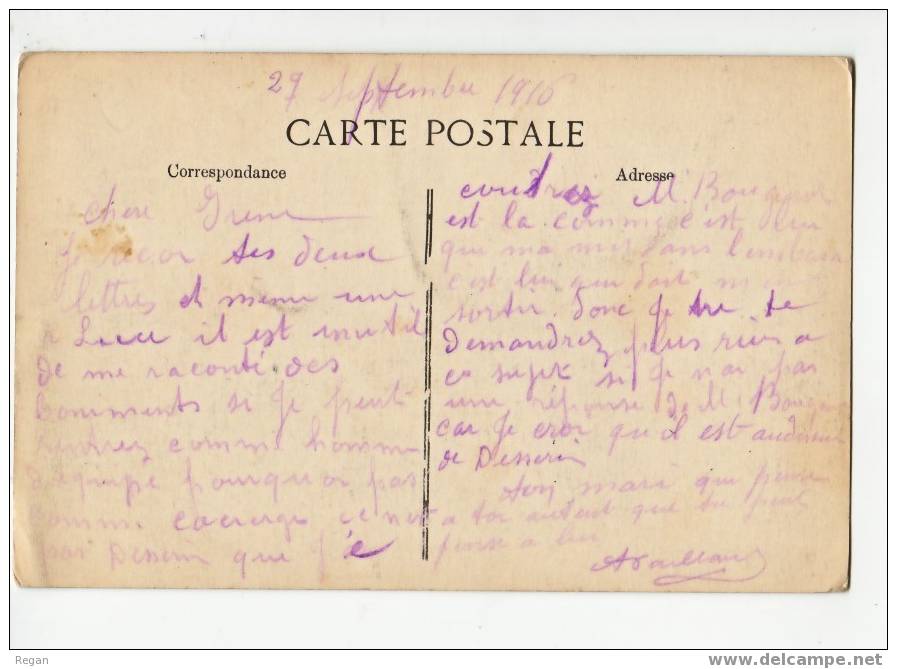 29 Septembre 1916
CARTE POSTALE
Correspondance
Adresse
chere Irene
Je recor tes deux
lettres et meme une
a Luce il est inutil
de me raconté des
boniments si je peut
rentrez comme homme
d'equipe pourquor pas
comme ce not
pas Desserin que j'é
coudrez Mr Bougard
est la comme c'est lui
que ma mis dans l'embara
c'est lui qui doit m'en
sortir. donc je ne te
demandrez plus rien a
ce sujet si je n'ai pas
une réponse de M. Bougard
car je cror que il est audessus
de Desserin
ton mari qui pense
a tor autent que tu peut
pense a lui
Regan
www.delcampe.net